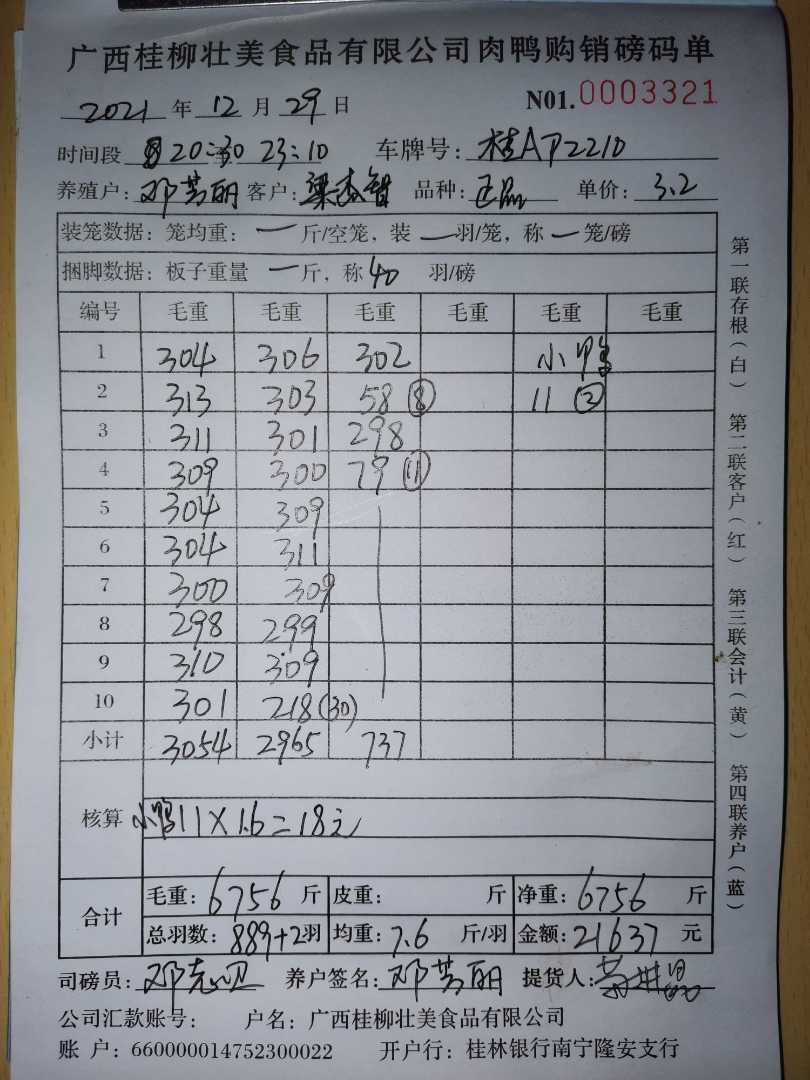 广西桂柳壮美食品有限公司肉鸭购销磅码单
2021 年 12 月 29 日 N01.0003321
时间段 20:30 23:10 车牌号: 桂AP2210
养殖户: 邓芳丽 客户: 梁杰智 品种: 正品 单价: 3.2
装笼数据: 笼均重: 一 斤/空笼, 装 一 羽/笼, 称 一 笼/磅
捆脚数据: 板子重量 一 斤, 称 40 羽/磅
编号 毛重 毛重 毛重 毛重 毛重 毛重
1 304 306 302 小鸭
2 313 303 58 ⑧ 11 ②
3 311 301 298
4 309 300 79 ⑪
5 304 309
6 304 311
7 300 309
8 298 299
9 310 309
10 301 218(30)
小计 3054 2965 737
核算 小鸭11×1.6=18元
合计 毛重: 6756 斤 皮重: 斤 净重: 6756 斤
总羽数: 889+2羽 均重: 7.6 斤/羽 金额: 21637 元
司磅员: 邓志 养户签名: 邓芳丽 提货人:
公司汇款账号: 户名: 广西桂柳壮美食品有限公司
账 户: 660000014752300022 开户行: 桂林银行南宁隆安支行
第一联存根(白) 第二联客户(红) 第三联会计(黄) 第四联养户(蓝)